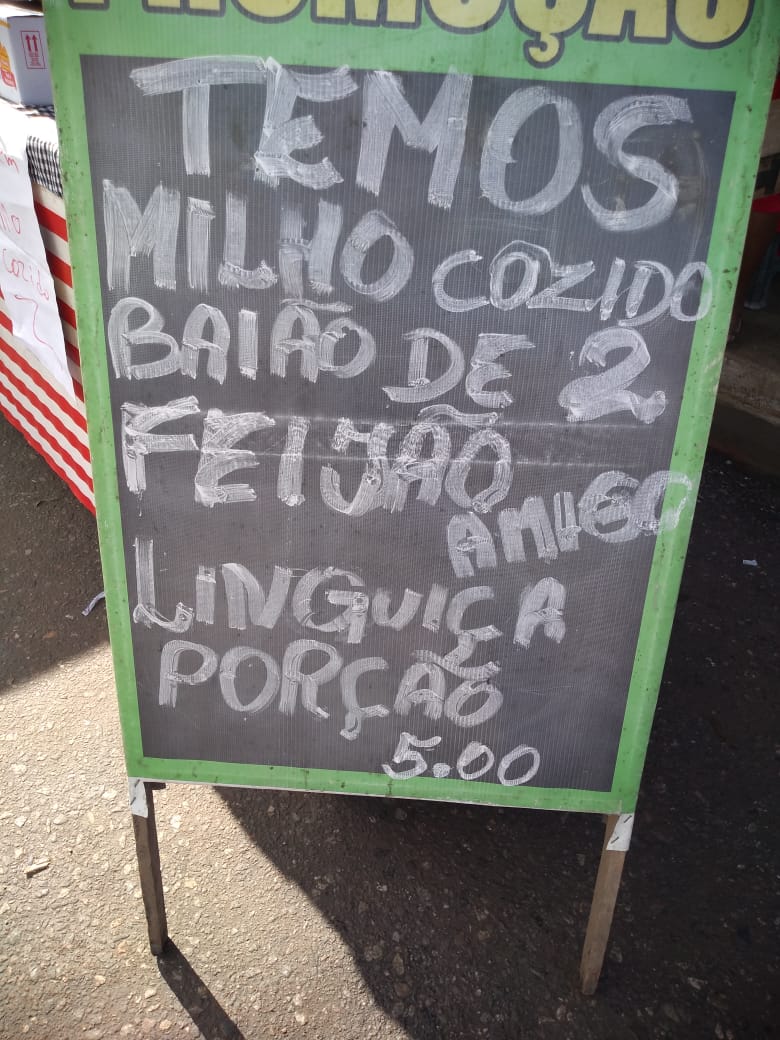 PROMOÇÃO
TEMOS
MILHO COZIDO
BAIÃO DE 2
FEIJÃO
AMIGO
LINGUIÇA
PORÇÃO
5.00
cozido